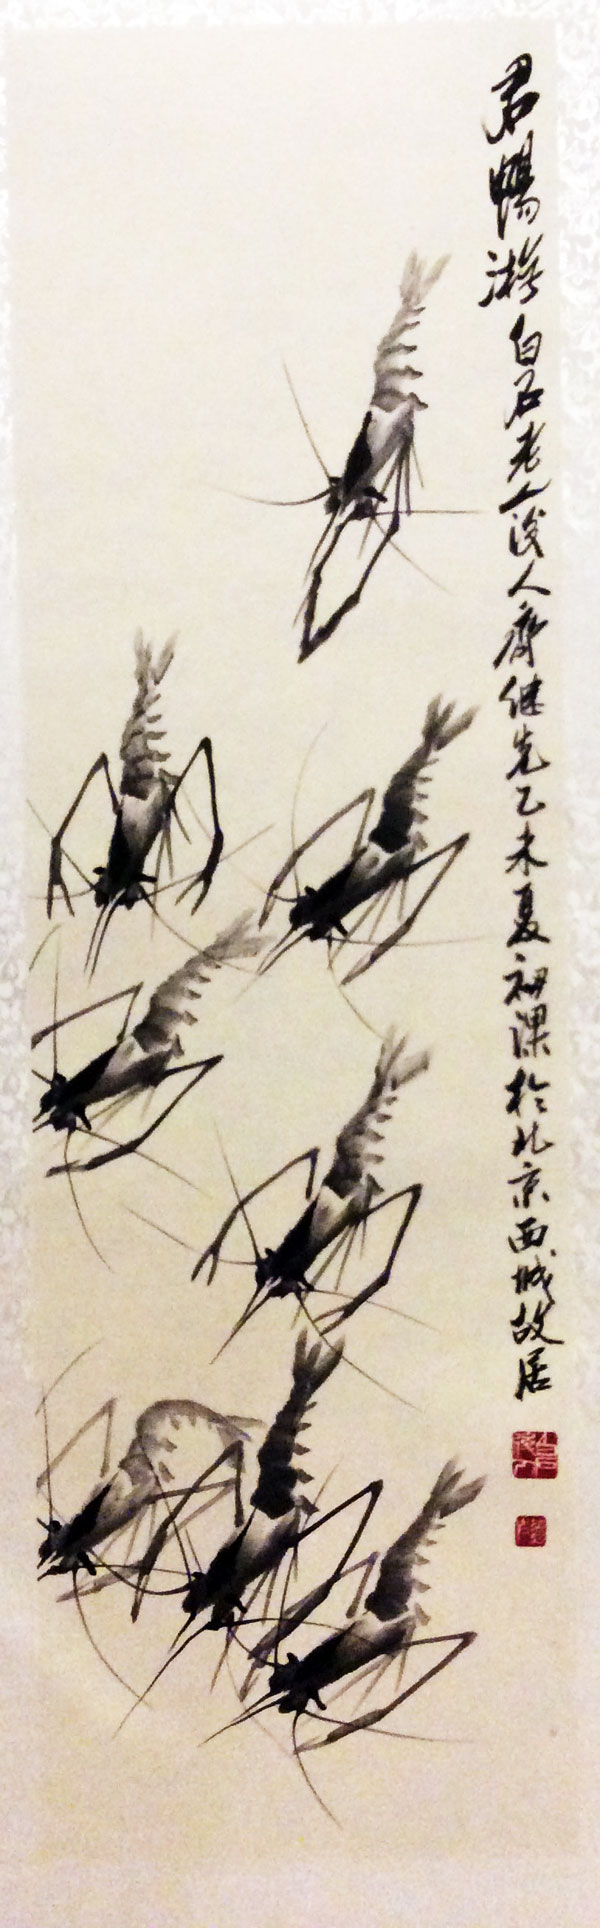 君暢游白石老人後人齊继先乙未夏初課於北京西城故居